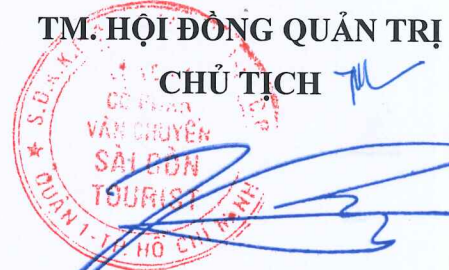 TM. HỘI ĐỒNG QUẢN TRỊ
CHỦ TỊCH
CỔ PHẦN
VẬN CHUYỂN
SÀI GÒN
TOURIST
QUẬN 1 - TP HỒ CHÍ MINH